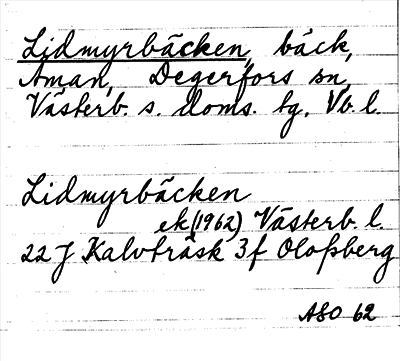 Lidmyrbäcken, bäck,
Åman, Degerfors sn,
Västerb. s. doms. tg, Vb. l.
Lidmyrbäcken
ek (1962) Västerb. l.
22 J Kalvträsk 3f Olofsberg
ASO 62